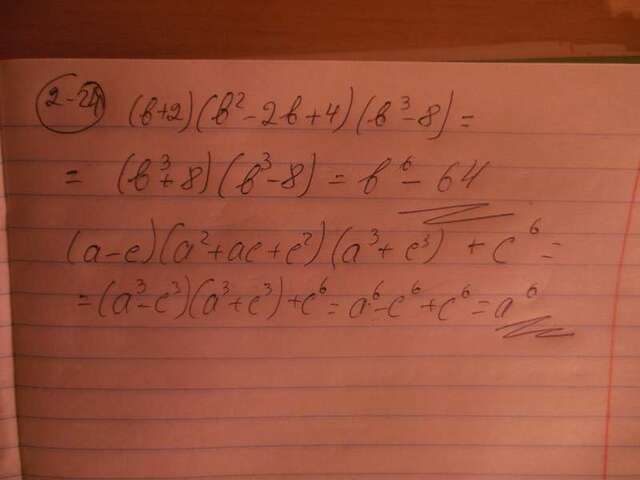 2-24
(b+2)(b²-2b+4)(b³-8)=
= (b³+8)(b³-8) = b⁶ - 64
(a-c)(a²+ac+c²)(a³+c³) + c⁶=
=(a³-c³)(a³+c³)+c⁶=a⁶-c⁶+c⁶=a⁶